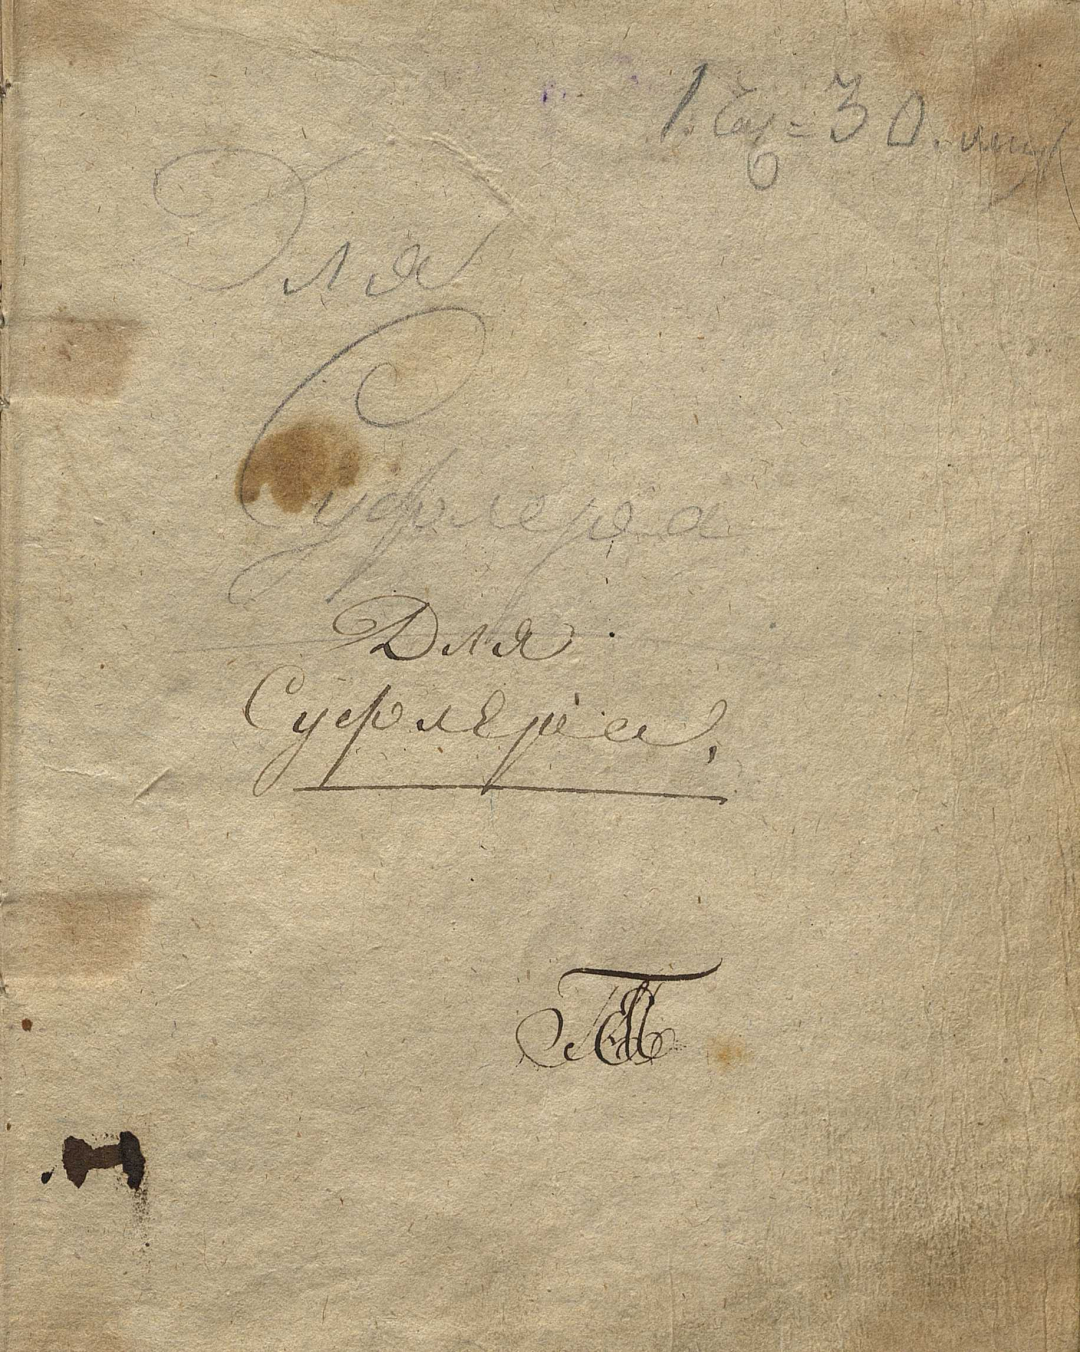 1. Час = 30. мин
Для
Суфлера
Для
Суфлера.